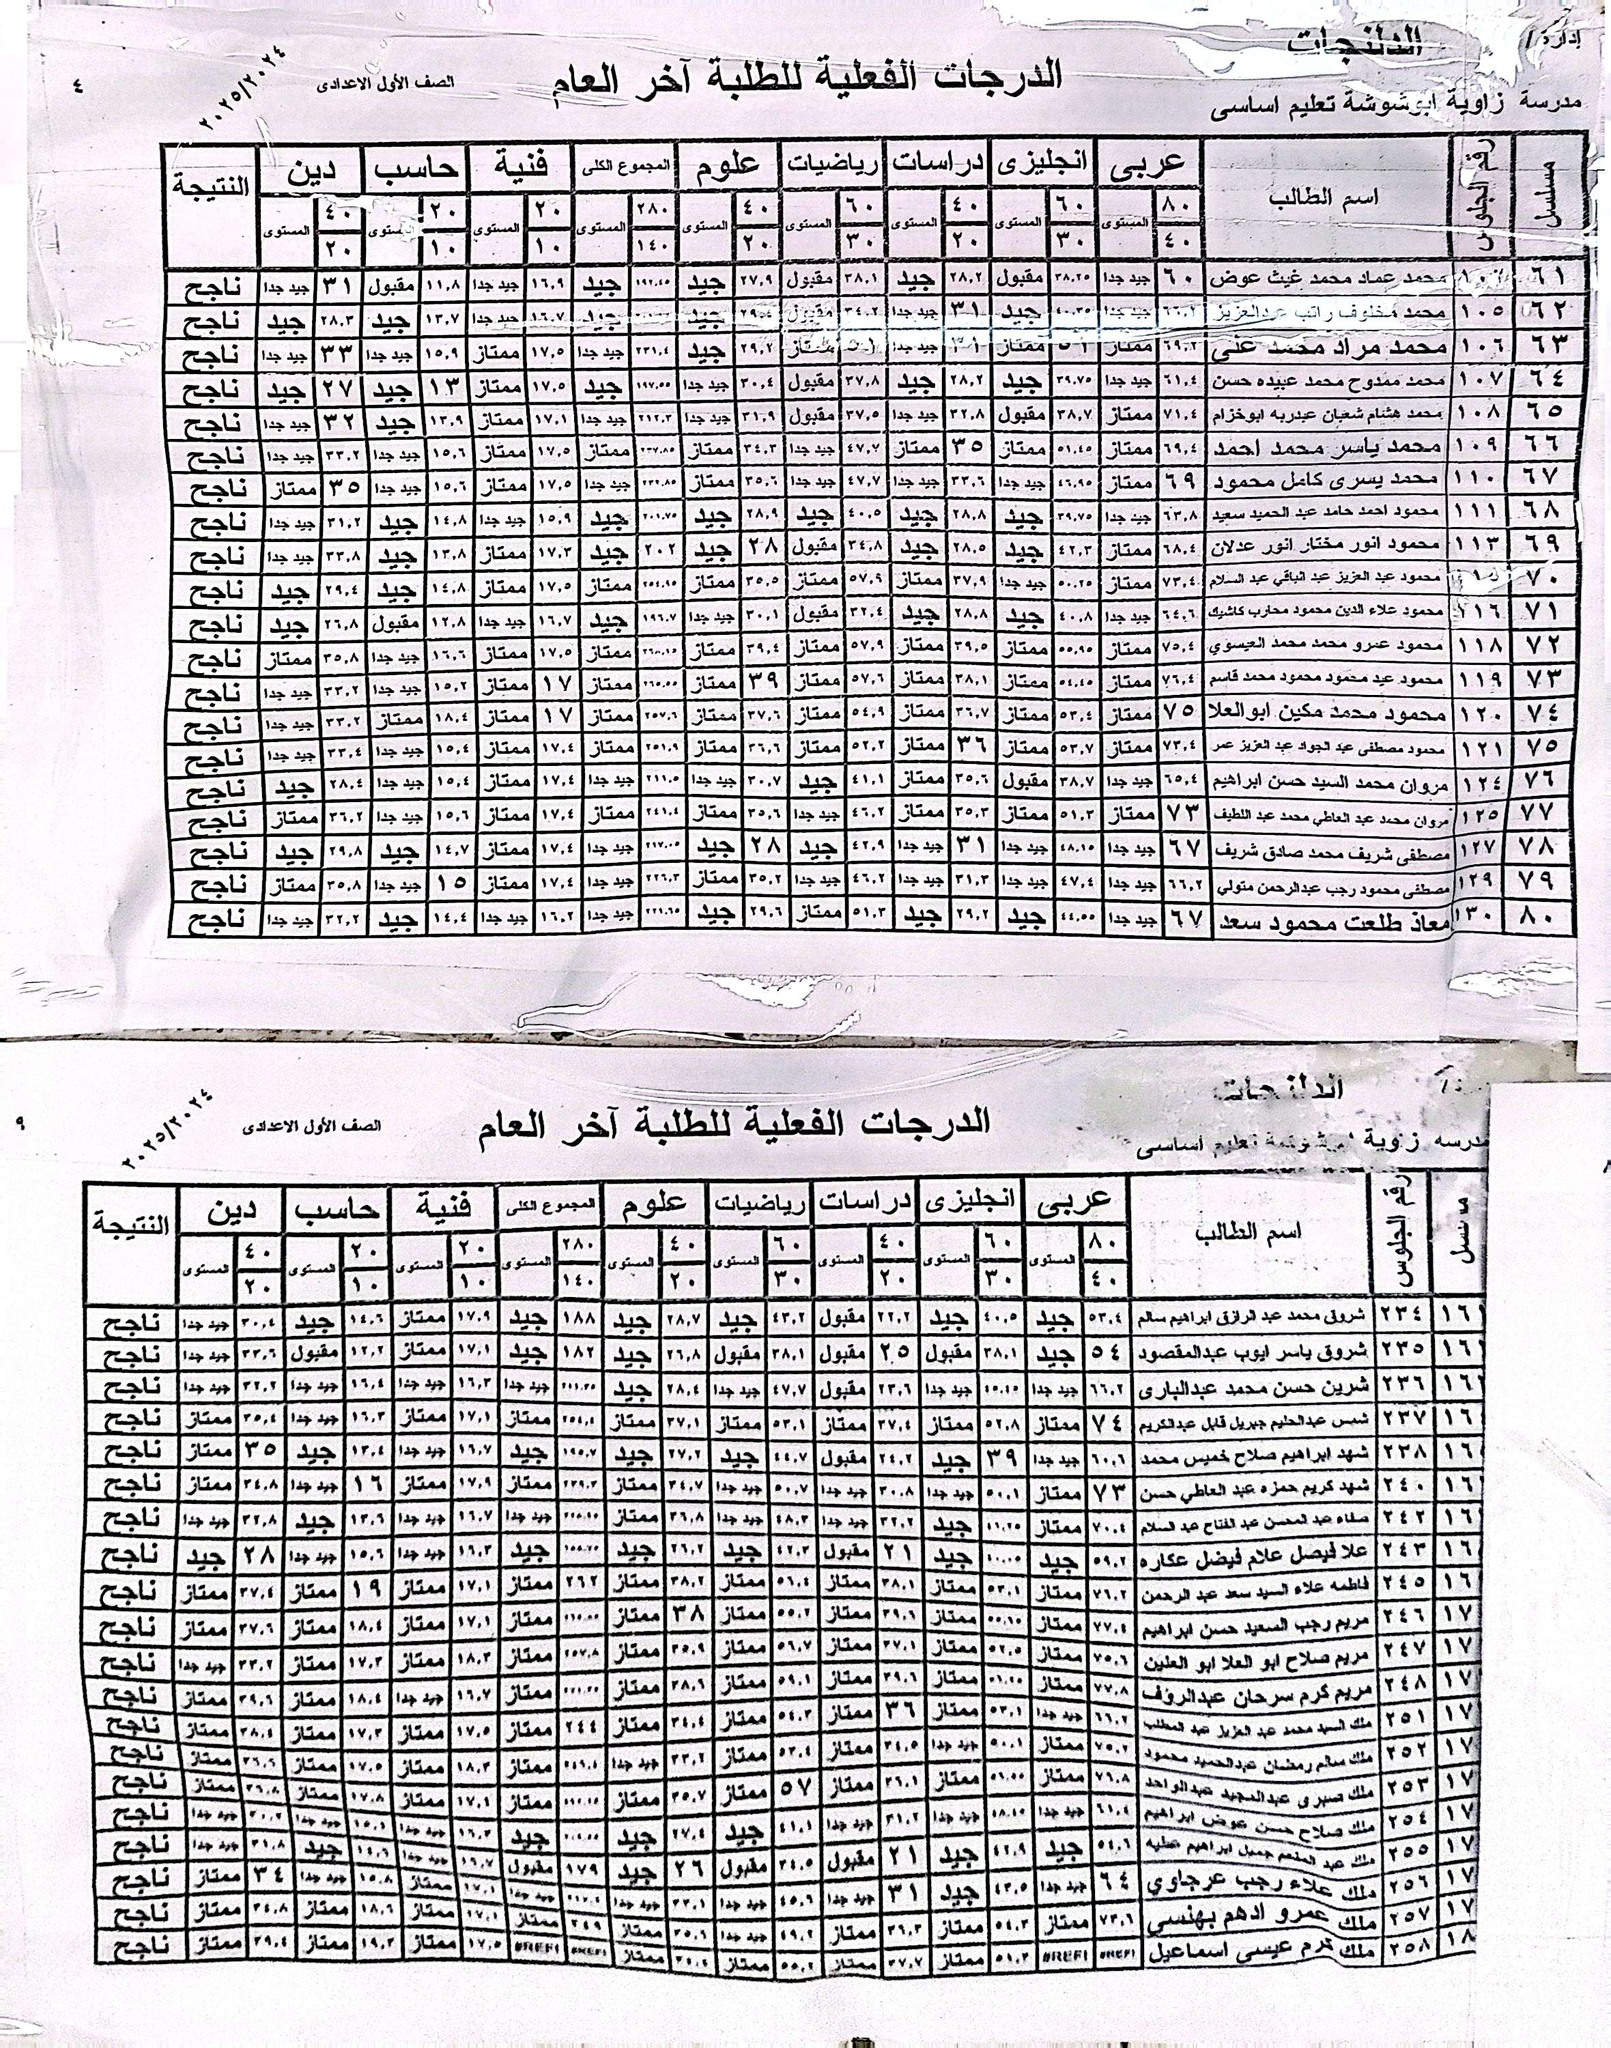 إدارة / الدلنجات
مدرسة زاوية ابوشوشة تعليم اساسى
الدرجات الفعلية للطلبة آخر العام
الصف الأول الاعدادى
٢٠٢٥/٢٠٢٤
٤
مسلسل رقم الجلوس اسم الطالب عربى انجليزى دراسات رياضيات علوم المجموع الكلى فنية حاسب دين النتيجة
٨٠ المستوى ٦٠ المستوى ٤٠ المستوى ٦٠ المستوى ٤٠ المستوى ٢٨٠ المستوى ٢٠ المستوى ٢٠ المستوى ٤٠ المستوى
٤٠ ٣٠ ٢٠ ٣٠ ٢٠ ١٤٠ ١٠ ١٠ ٢٠
٦١ محمد عماد محمد غيث عوض ٦٠ جيد جدا ٣٨.٢٥ مقبول ٢٨.٢ جيد ٣٨.١ مقبول ٢٧.٩ جيد ١٩٢.٤٥ جيد ١٦.٩ جيد جدا ١١.٨ مقبول ٣١ جيد جدا ناجح
٦٢ ١٠٥ محمد مخلوف راتب عبدالعزيز جيد جدا ٤٠.٣٥ جيد ٣١ جيد جدا ٣٤.٢ مقبول جيد جيد ١٦.٧ جيد جدا ١٣.٧ جيد ٢٨.٣ جيد ناجح
٦٣ ١٠٦ محمد مراد محمد على ٦٩.٢ ممتاز ٥١ ممتاز ٣١ جيد جدا ٥١ ممتاز ٢٩.٢ جيد ٢٣١.٤ جيد جدا ١٧.٥ ممتاز ١٥.٩ جيد جدا ٣٣ جيد جدا ناجح
٦٤ ١٠٧ محمد ممدوح محمد عبيده حسن ٦١.٤ جيد جدا ٣٩.٧٥ جيد ٢٨.٢ جيد ٣٧.٨ مقبول ٣٠.٤ جيد جدا ١٩٧.٥٥ جيد ١٧.٥ ممتاز ١٣ جيد ٢٧ جيد ناجح
٦٥ ١٠٨ محمد هشام شعبان عبدربه ابوخزام ٧١.٤ ممتاز ٣٨.٧ مقبول ٣٢.٨ جيد جدا ٣٧.٥ مقبول ٣١.٩ جيد جدا ٢١٢.٣ جيد جدا ١٧.١ ممتاز ١٣.٩ جيد ٣٢ جيد جدا ناجح
٦٦ ١٠٩ محمد ياسر محمد احمد ٦٩.٤ ممتاز ٥١.٤٥ ممتاز ٣٥ ممتاز ٤٧.٧ جيد جدا ٣٤.٣ ممتاز ٢٣٧.٨٥ ممتاز ١٧.٥ ممتاز ١٥.٦ جيد جدا ٣٣.٢ جيد جدا ناجح
٦٧ ١١٠ محمد يسرى كامل محمود ٦٩ ممتاز ٤٦.٩٥ جيد جدا ٣٣.٦ جيد جدا ٤٧.٧ جيد جدا ٣٥.٦ ممتاز ٢٣٢.٨٥ جيد جدا ١٧.٥ ممتاز ١٥.٦ جيد جدا ٣٥ ممتاز ناجح
٦٨ ١١١ محمود احمد حامد عبد الحميد سعيد ٦٣.٨ جيد جدا ٣٩.٧٥ جيد ٢٨.٨ جيد ٤٠.٥ جيد ٢٨.٩ جيد ٢٠١.٧٥ جيد ١٥.٩ جيد جدا ١٤.٨ جيد ٣١.٢ جيد جدا ناجح
٦٩ ١١٣ محمود انور مختار انور عدلان ٦٨.٤ ممتاز ٤٢.٣ جيد ٢٨.٥ جيد ٣٤.٨ مقبول ٢٨ جيد ٢٠٢ جيد ١٧.٣ ممتاز ١٣.٨ جيد ٣٣.٨ جيد جدا ناجح
٧٠ محمود عبد العزيز عبد الباقي عبد السلام ٧٣.٤ ممتاز ٥٠.٢٥ جيد جدا ٣٧.٩ ممتاز ٥٧.٩ ممتاز ٣٥.٥ ممتاز ٢٥٤.٩٥ ممتاز ١٧.٥ ممتاز ١٤.٨ جيد ٢٩.٤ جيد ناجح
٧١ ١١٦ محمود علاء الدين محمود محارب كاشيك ٦٤.٦ جيد جدا ٤٠.٨ جيد ٢٨.٨ جيد ٣٢.٤ مقبول ٣٠.١ جيد جدا ١٩٦.٧ جيد ١٦.٧ جيد جدا ١٢.٨ مقبول ٢٦.٨ جيد ناجح
٧٢ ١١٨ محمود عمرو محمد محمد العيسوي ٧٥.٤ ممتاز ٥٥.٩٥ ممتاز ٣٩.٥ ممتاز ٥٧.٩ ممتاز ٣٩.٤ ممتاز ممتاز ١٧.٥ ممتاز ١٦.٦ جيد جدا ٣٥.٨ ممتاز ناجح
٧٣ ١١٩ محمود عيد محمود محمود محمد قاسم ٧٦.٤ ممتاز ٥٤.٤٥ ممتاز ٣٨.١ ممتاز ٥٧.٦ ممتاز ٣٩ ممتاز ٢٦٥.٥٥ ممتاز ١٧ ممتاز ١٥.٢ جيد جدا ٣٣.٢ جيد جدا ناجح
٧٤ ١٢٠ محمود محمد مكين ابوالعلا ٧٥ ممتاز ٥٣.٤ ممتاز ٣٦.٧ ممتاز ٥٤.٩ ممتاز ٣٧.٦ ممتاز ٢٥٧.٦ ممتاز ١٧ ممتاز ١٨.٤ ممتاز ٣٣.٢ جيد جدا ناجح
٧٥ ١٢١ محمود مصطفى عبد الجواد عبد العزيز عمر ٧٣.٤ ممتاز ٥٣.٧ ممتاز ٣٦ ممتاز ٥٢.٢ ممتاز ٣٦.٦ ممتاز ٢٥١.٩ ممتاز ١٧.٤ ممتاز ١٥.٤ جيد جدا ٣٣.٤ جيد جدا ناجح
٧٦ ١٢٤ مروان محمد السيد حسن ابراهيم ٦٥.٤ جيد جدا ٣٨.٧ مقبول ٣٥.٦ ممتاز ٤١.١ جيد ٣٠.٧ جيد جدا ٢١١.٥ جيد جدا ١٧.٤ ممتاز ١٥.٤ جيد جدا ٢٨.٤ جيد ناجح
٧٧ ١٢٥ مروان محمد عبد العاطي محمد عبد اللطيف ٧٣ ممتاز ٥١.٣ ممتاز ٣٥.٣ ممتاز ٤٦.٢ جيد جدا ٣٥.٦ ممتاز ٢٤١.٤ ممتاز ١٧.٤ ممتاز ١٥.٦ جيد جدا ٣٦.٢ ممتاز ناجح
٧٨ ١٢٧ مصطفى شريف محمد صادق شريف ٦٧ جيد جدا ٤٨.١٥ جيد جدا ٣١ جيد جدا ٤٢.٩ جيد ٢٨ جيد ٢١٧.٠٥ جيد جدا ١٧.٤ ممتاز ١٤.٧ جيد ٢٩.٨ جيد ناجح
٧٩ ١٢٩ مصطفى محمود رجب عبدالرحمن متولي ٦٦.٢ جيد جدا ٤٧.٤ جيد جدا ٣١.٣ جيد جدا ٤٦.٢ جيد جدا ٣٥.٢ ممتاز ٢٢٦.٣ جيد جدا ١٧.٤ ممتاز ١٥ جيد جدا ٣٥.٨ ممتاز ناجح
٨٠ ١٣٠ معاذ طلعت محمود سعد ٦٧ جيد جدا ٤٤.٥٥ جيد ٢٩.٢ جيد ٥١.٣ ممتاز ٢٩.٦ جيد ٢٢١.٦٥ جيد جدا ١٦.٢ جيد جدا ١٤.٤ جيد ٣٢.٢ جيد جدا ناجح
الدلنجات
مدرسه زاوية تعليم اساسى
الدرجات الفعلية للطلبة آخر العام
الصف الأول الاعدادى
٢٠٢٥/٢٠٢٤
٩
رقم الجلوس اسم الطالب عربى انجليزى دراسات رياضيات علوم المجموع الكلى فنية حاسب دين النتيجة
٨٠ المستوى ٦٠ المستوى ٤٠ المستوى ٦٠ المستوى ٤٠ المستوى ٢٨٠ المستوى ٢٠ المستوى ٢٠ المستوى ٤٠ المستوى
٤٠ ٣٠ ٢٠ ٣٠ ٢٠ ١٤٠ ١٠ ١٠ ٢٠
١٦١ ٢٣٤ شروق محمد عبد الرازق ابراهيم سالم ٥٣.٤ جيد ٤٠.٥ جيد ٢٢.٢ مقبول ٤٣.٢ جيد ٢٨.٧ جيد ١٨٨ جيد ١٧.٩ ممتاز ١٤.٦ جيد ٣٠.٤ جيد جدا ناجح
١٦ ٢٣٥ شروق ياسر ايوب عبدالمقصود ٥٤ جيد ٣٨.١ مقبول ٢٥ مقبول ٣٨.١ مقبول ٢٦.٨ جيد ١٨٢ جيد ١٧.١ ممتاز ١٢.٢ مقبول ٣٣.٦ جيد جدا ناجح
١٦ ٢٣٦ شرين حسن محمد عبدالبارى ٦٦.٢ جيد جدا ٤٥.٤٥ جيد جدا ٢٣.٦ مقبول ٤٧.٧ جيد جدا ٢٨.٤ جيد جيد جدا ١٦.٣ جيد جدا ١٦.٤ جيد جدا ٣٢.٢ جيد جدا ناجح
١٦ ٢٣٧ شمس عبدالحليم جبريل قابل عبدالكريم ٧٤ ممتاز ٥٢.٨ ممتاز ٣٧.٤ ممتاز ٥٣.١ ممتاز ٣٧.١ ممتاز ٢٥٤.٤ ممتاز ١٧.١ ممتاز ١٦.٣ جيد جدا ٣٥.٤ ممتاز ناجح
١٦ ٢٣٨ شهد ابراهيم صلاح خميس محمد ٦٠.٦ جيد جدا ٣٩ جيد ٢٤.٢ مقبول ٤٤.٧ جيد ٢٧.٢ جيد ١٩٥.٧ جيد ١٦.٧ جيد جدا ١٣.٤ جيد ٣٥ ممتاز ناجح
١٦ ٢٤٠ شهد كريم حمزه عبد العاطي حسن ٧٣ ممتاز ٥٠.١ جيد جدا ٣٠.٨ جيد جدا ٥٠.٧ جيد جدا ٣٤.٧ ممتاز ٢٣٩.٣ ممتاز ١٧.٩ ممتاز ١٦ جيد جدا ٣٤.٨ ممتاز ناجح
١٦ ٢٤٢ صفاء عبد المحسن عبد الفتاح عبد السلام ٧٠.٤ ممتاز جيد ٣٢.٢ جيد جدا ٤٨.٣ جيد جدا ٣٦.٨ ممتاز جيد جدا ١٦.٧ جيد جدا ١٣.٦ جيد ٣٢.٨ جيد جدا ناجح
١٦ ٢٤٣ علا فيصل علام فيضل عكاره ٥٩.٢ جيد جيد ٢١ مقبول ٤٢.٣ جيد ٢٦.٢ جيد جيد ١٦.٣ جيد جدا ١٥.٦ جيد جدا ٢٨ جيد ناجح
١٦ ٢٤٥ فاطمه علاء السيد سعد عبد الرحمن ٧٦.٢ ممتاز ٥٣.١ ممتاز ٣٨.١ ممتاز ٥٦.٤ ممتاز ٣٨.٢ ممتاز ٢٦٢ ممتاز ١٧.١ ممتاز ١٩ ممتاز ٣٧.٤ ممتاز ناجح
١٧ ٢٤٦ مريم رجب السعيد حسن ابراهيم ٧٧.٤ ممتاز ممتاز ٣٩.٦ ممتاز ٥٥.٢ ممتاز ٣٨ ممتاز ممتاز ١٧.١ ممتاز ١٨.٤ ممتاز ٣٧.٦ ممتاز ناجح
١٧ ٢٤٧ مريم صلاح ابو العلا ابو العنين ٧٥.٦ ممتاز ٥٢.٥ ممتاز ٣٧.١ ممتاز ٥٦.٧ ممتاز ٣٥.٩ ممتاز ٢٥٧.٨ ممتاز ١٨.٣ ممتاز ١٧.٣ ممتاز ٣٣.٢ جيد جدا ناجح
١٧ ٢٤٨ مريم كرم سرحان عبدالرؤف ٧٧.٨ ممتاز ممتاز ٣٩.٦ ممتاز ٥٩.١ ممتاز ٣٨.٦ ممتاز ممتاز ١٦.٧ جيد جدا ١٨.٤ ممتاز ٣٩.٦ ممتاز ناجح
١٧ ٢٥١ ملك السيد محمد عبد العزيز عبد المطلب ٦٦.٢ جيد جدا ٥٣.١ ممتاز ٣٦ ممتاز ٥٤.٣ ممتاز ٣٤.٤ ممتاز ٢٤٤ ممتاز ١٧.٥ ممتاز ١٧.٣ ممتاز ٣٨.٤ ممتاز ناجح
١٧ ٢٥٢ ملك سالم رمضان عبدالحميد محمود ٧٥.٢ ممتاز ٥٠.١ جيد جدا ٣٤.٥ ممتاز ٥٣.٤ ممتاز ٣٣.٢ جيد جدا ٢٤٦.٤ ممتاز ١٨.٣ ممتاز ١٧.٥ ممتاز ٣٦.٦ ممتاز ناجح
١٧ ٢٥٣ ملك صبرى عبدالمجيد عبدالواحد ٧٦.٨ ممتاز ممتاز ٣٦.١ ممتاز ٥٧ ممتاز ٣٥.٧ ممتاز ممتاز ١٧.٩ ممتاز ١٧.٨ ممتاز ٣٦.٨ ممتاز ناجح
١٧ ٢٥٤ ملك صلاح حسن عوض ابراهيم ٦١.٤ جيد جدا جيد جدا ٣١.٢ جيد جدا ٤١.١ جيد ٢٧.٤ جيد جيد ١٦.٣ جيد جدا ١٥.١ جيد جدا ٣٠.٢ جيد جدا ناجح
١٧ ٢٥٥ ملك عبد المنعم جميل ابراهيم عطيه ٥٤.٦ جيد ٤٢.٩ جيد ٢١ مقبول ٣٤.٥ مقبول ٢٦ جيد ١٧٩ مقبول ١٦.٧ جيد جدا ١٤.٦ جيد ٣١.٨ جيد جدا ناجح
١٧ ٢٥٦ ملك علاء رجب عرجاوي ٦٤ جيد جدا ٤٣.٥ جيد ٣١ جيد جدا ٤٥.٦ جيد جدا ٣٣.١ جيد جدا ٢١٧.٢ جيد جدا ١٧.١ ممتاز ١٥.٨ جيد جدا ٣٤ ممتاز ناجح
١٧ ٢٥٧ ملك عمرو ادهم بهنسى ٧٣.٦ ممتاز ٥٤.٣ ممتاز ٣٦.٣ ممتاز ٤٩.٢ جيد جدا ٣٥.٦ ممتاز ٢٤٩ ممتاز ١٧.١ ممتاز ١٨.٦ ممتاز ٣٤.٨ ممتاز ناجح
١٨ ٢٥٨ ملك كرم عيسى اسماعيل #REF! #REF! ٥١.٣ ممتاز ٣٧.٧ ممتاز ٥٥.٢ ممتاز ممتاز #REF! #REF! ١٧.٥ ممتاز ١٩.٣ ممتاز ٣٩.٤ ممتاز ناجح